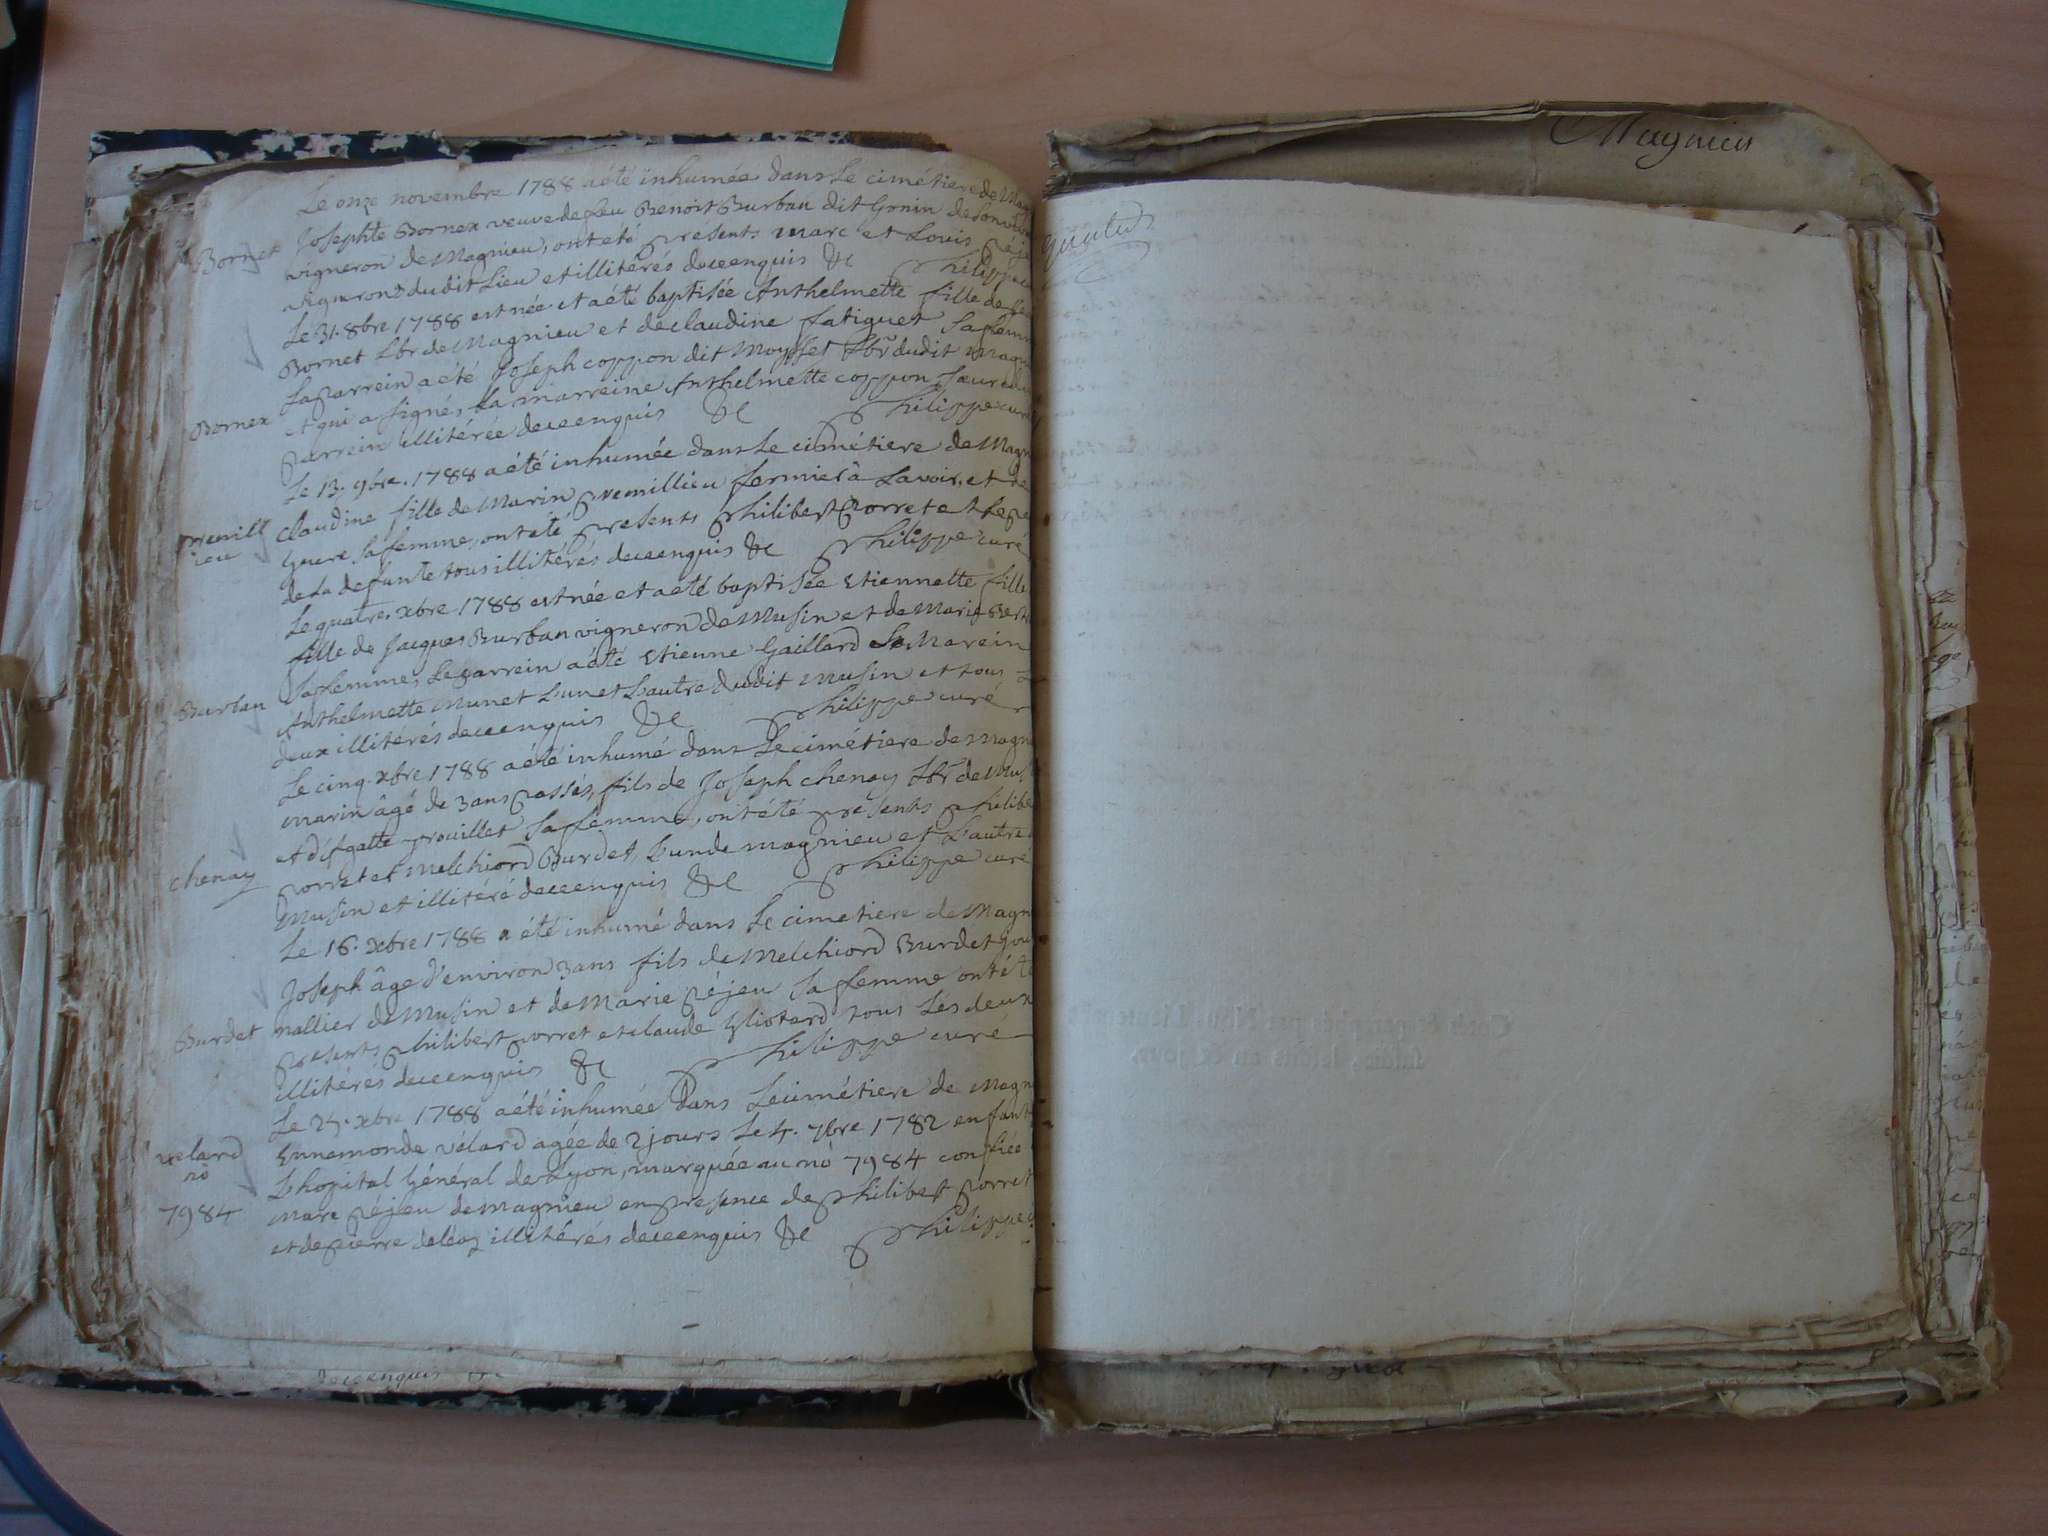 Le onze novembre 1788 a été inhumée dans Le cimétiere de Mag
Bornet
Josephte Bornex veuve de feu Benoit Burban dit Gonin
vigneron de Magnieu, ont eté presents Marc et Louis péje
vignerons du dit Lieu et illitérés de ce enquis &c philippe
Le 31. 8bre 1788 est née et a été baptisée Anthelmette fille de
Bornex
Bornet Lbr de Magnieu et de claudine fatiguet sa femm
Le parrein a été Joseph coppon dit Moysset Lbr dudit Magni
et qui a signé, La marreine Anthelmette coppon soeur du
parrein illitérée de ce enquis &c philippe curé
Le 13. 9bre. 1788 a été inhumée dans Le cimétiere de Magn
premill
ieu
claudine fille de Marin premillieu fermier à Lavoir, et de
sa femme, ont été presents philibert porret et le pe
de La defunte tous illitérés de ce enquis &c philippe curé
Le quatre. xbre 1788 est née et a été baptisée Etiennette fille
Burban
fille de Jacques Burban vigneron de Musin et de Marie Bert
sa femme, Le parrein a été Etienne Gaillard La Marein
Anthelmette Munet L'un et L'autre dudit Musin et tous L
deux illitérés de ce enquis &c philippe curé
Le cinq. xbre 1788 a été inhumé dans Le cimétiere de Magn
chenay
marin âgé de 3 ans passés, fils de Joseph chenay Lbr de Mus
et d'Agatte prouillet sa femme, ont été présents philibe
porret et Melchiord Burdet, L'un de magnieu et L'autre
Musin et illitéré de ce enquis &c philippe curé
Le 16. xbre 1788 a été inhumé dans Le cimetiere de Magn
Burdet
Joseph âge d'environ 3 ans fils de Melchiord Burdet jour
nallier de Musin et de Marie péjeu sa femme ont été
présents philibert porret et claude Gliotard tous Les deux
illitérés de ce enquis &c philippe curé
Le 25. xbre 1788 a été inhumée dans Le cimétiere de Magn
velard
no
7984
Ennemonde vélard agée de 2 jours Le 4. 7bre 1782 enfant
L'hopital Général de Lyon, marquée au no 7984 confiée
marc péjeu de magnieu en presence de philibert porret
et de pierre deléaz illitérés de ce enquis &c philippe
de ce enquis &c
Magnieu